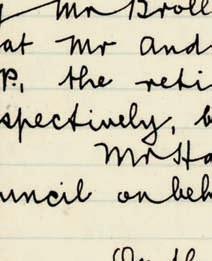 Mr Broll
at Mr And
P, the reti
spectively, b
Mr Ha
uncil on beh
On th